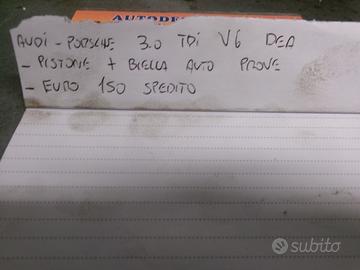 AUDI - PORSCHE 3.0 TDI V6
- PISTONE + BIELLA AUTO PROVE
- EURO 150 SPEDITO
subito